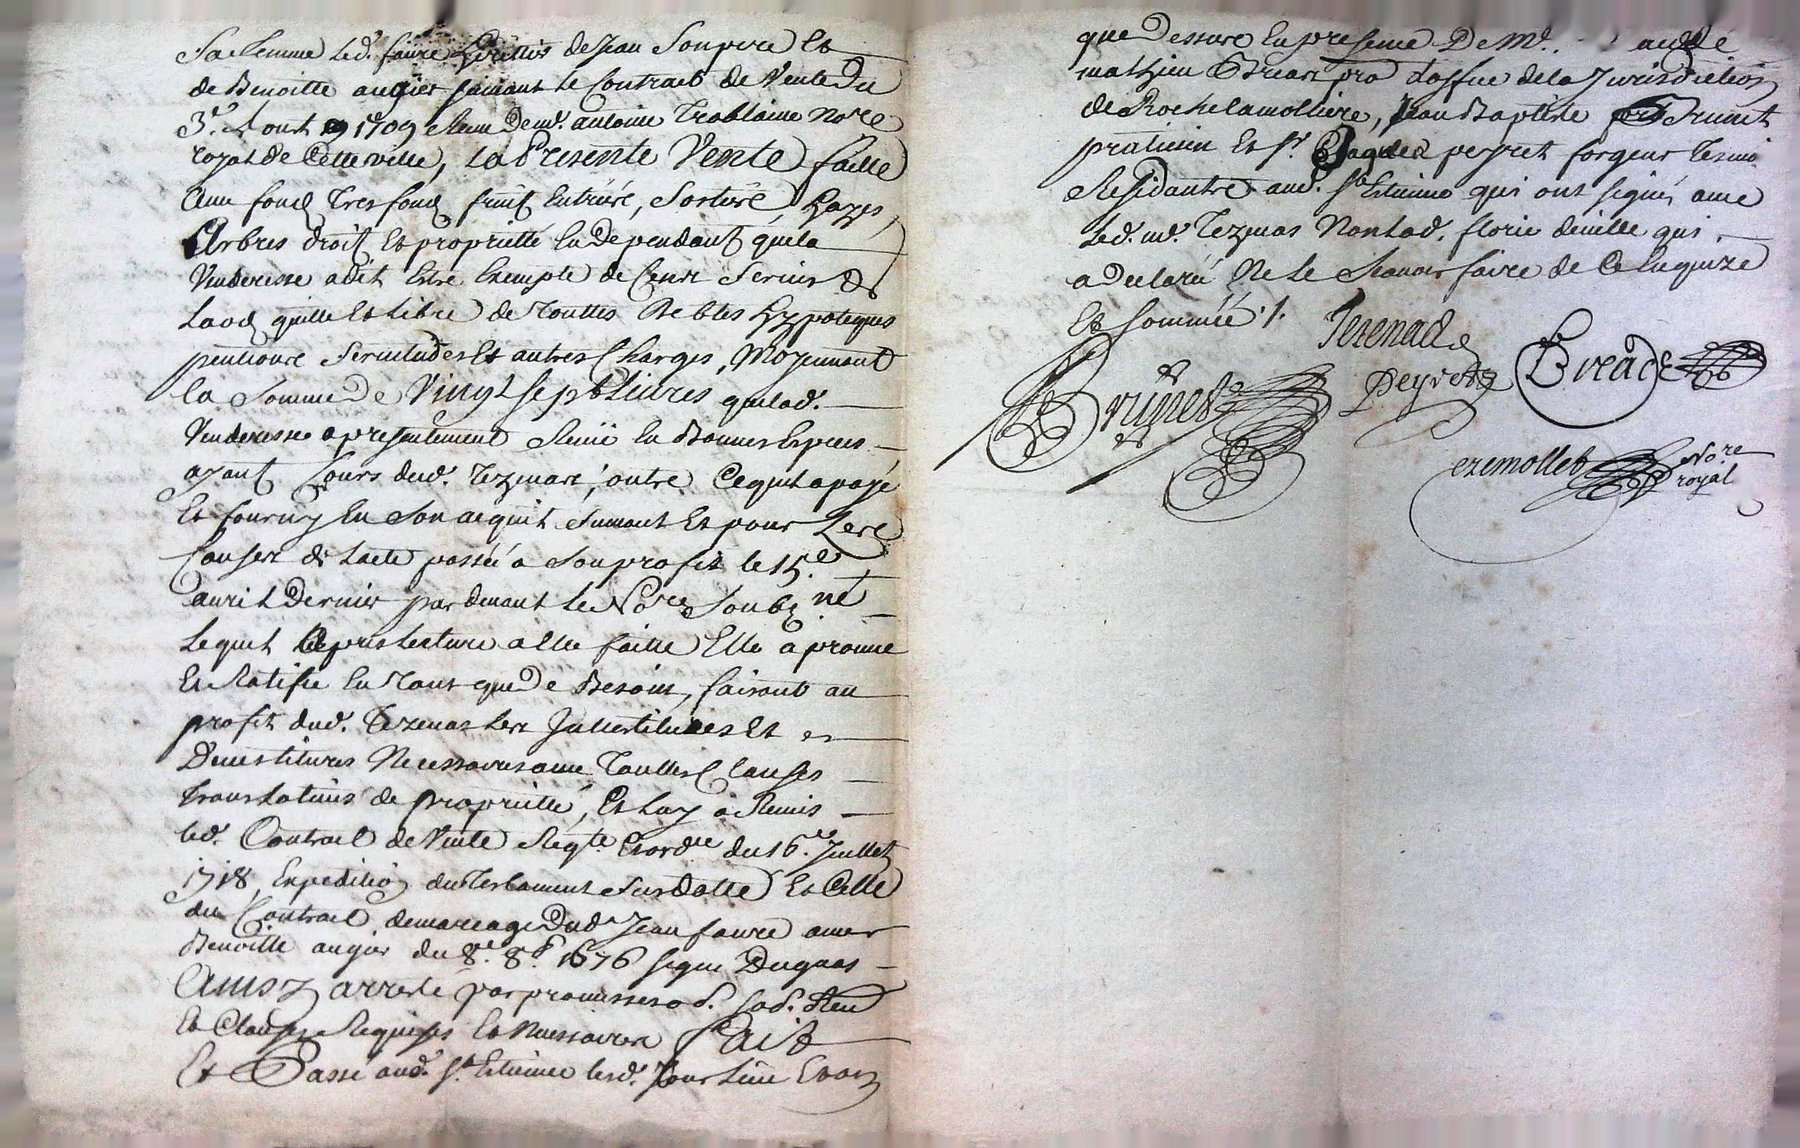 Sa femme led. faure heritier de Jean Son pere Et
de Benoitte augier suivant le Contract de Vente Du
3e. Aout 1709 Reçeu De me. antoine Trablaine Nore
royal de Cette ville, la Presente Vente faitte
avec fond Tresfond fruit Entrées, Sorties, hayes,
Arbres droit Et proprietté En Dependant que la
Venderesse a dit Estre Exempte de Cens Servis &
Laod quitte Et Libre de Touttes Debtes hypoteques
pentions Servitudes Et autres Charges, Moyennant
la Somme De Vingt sept Livres que lad.
Venderesse a presentement Reçeü En Bonnes Especes
ayant Cours dud. Tezenas, outre Ce quil a payé
Et fourny En Son acquit Suivant Et pour Les
Causes de Lacte passée a Son profit le 15e.
avril Dernier par devant le Nore Soub. né
Lequel apres lecture a Elle faitte Elle approuve
Et Ratifie En Tant que De Besoin, faisant au
profit dud. Tezenas Les Investitures Et
Devestitures Necessaires avec Touttes Clauses
translatives de proprietté, Et Luy à Remis
led. Contract de Vente du 16e. Juillet
1718, Expedition du Testament Susdatté Et Celle
du Contract de mariage Dud. Jean faure avec
Benoitte augier du 8e. 8e. 1676 signé Dugas
Ainsy arresté par promesses o d. Sod. Ren
Et Clauses Requises Et Necessaires Fait
Et Passé aud. St. Etienne lesd. Jour Lieu Et an
que Dessure En presence De Me.
mathieu Breat pro doffice de la Jurisdiction
de Rochelamolliere, Jean Baptiste Brunet
praticien Et sr. Jaques peyret forgeur Tesmo
Residants aud. St. Etienne qui ont signés avec
Led. me. Tezenas Non Lad. florie deville qui
a Declaré Ne Le Sçavoir faire de Ce Enquize
Et Sommée ./.
Tezenas
Brunet
Peyret
Breat
Ezemollet Nore
royal